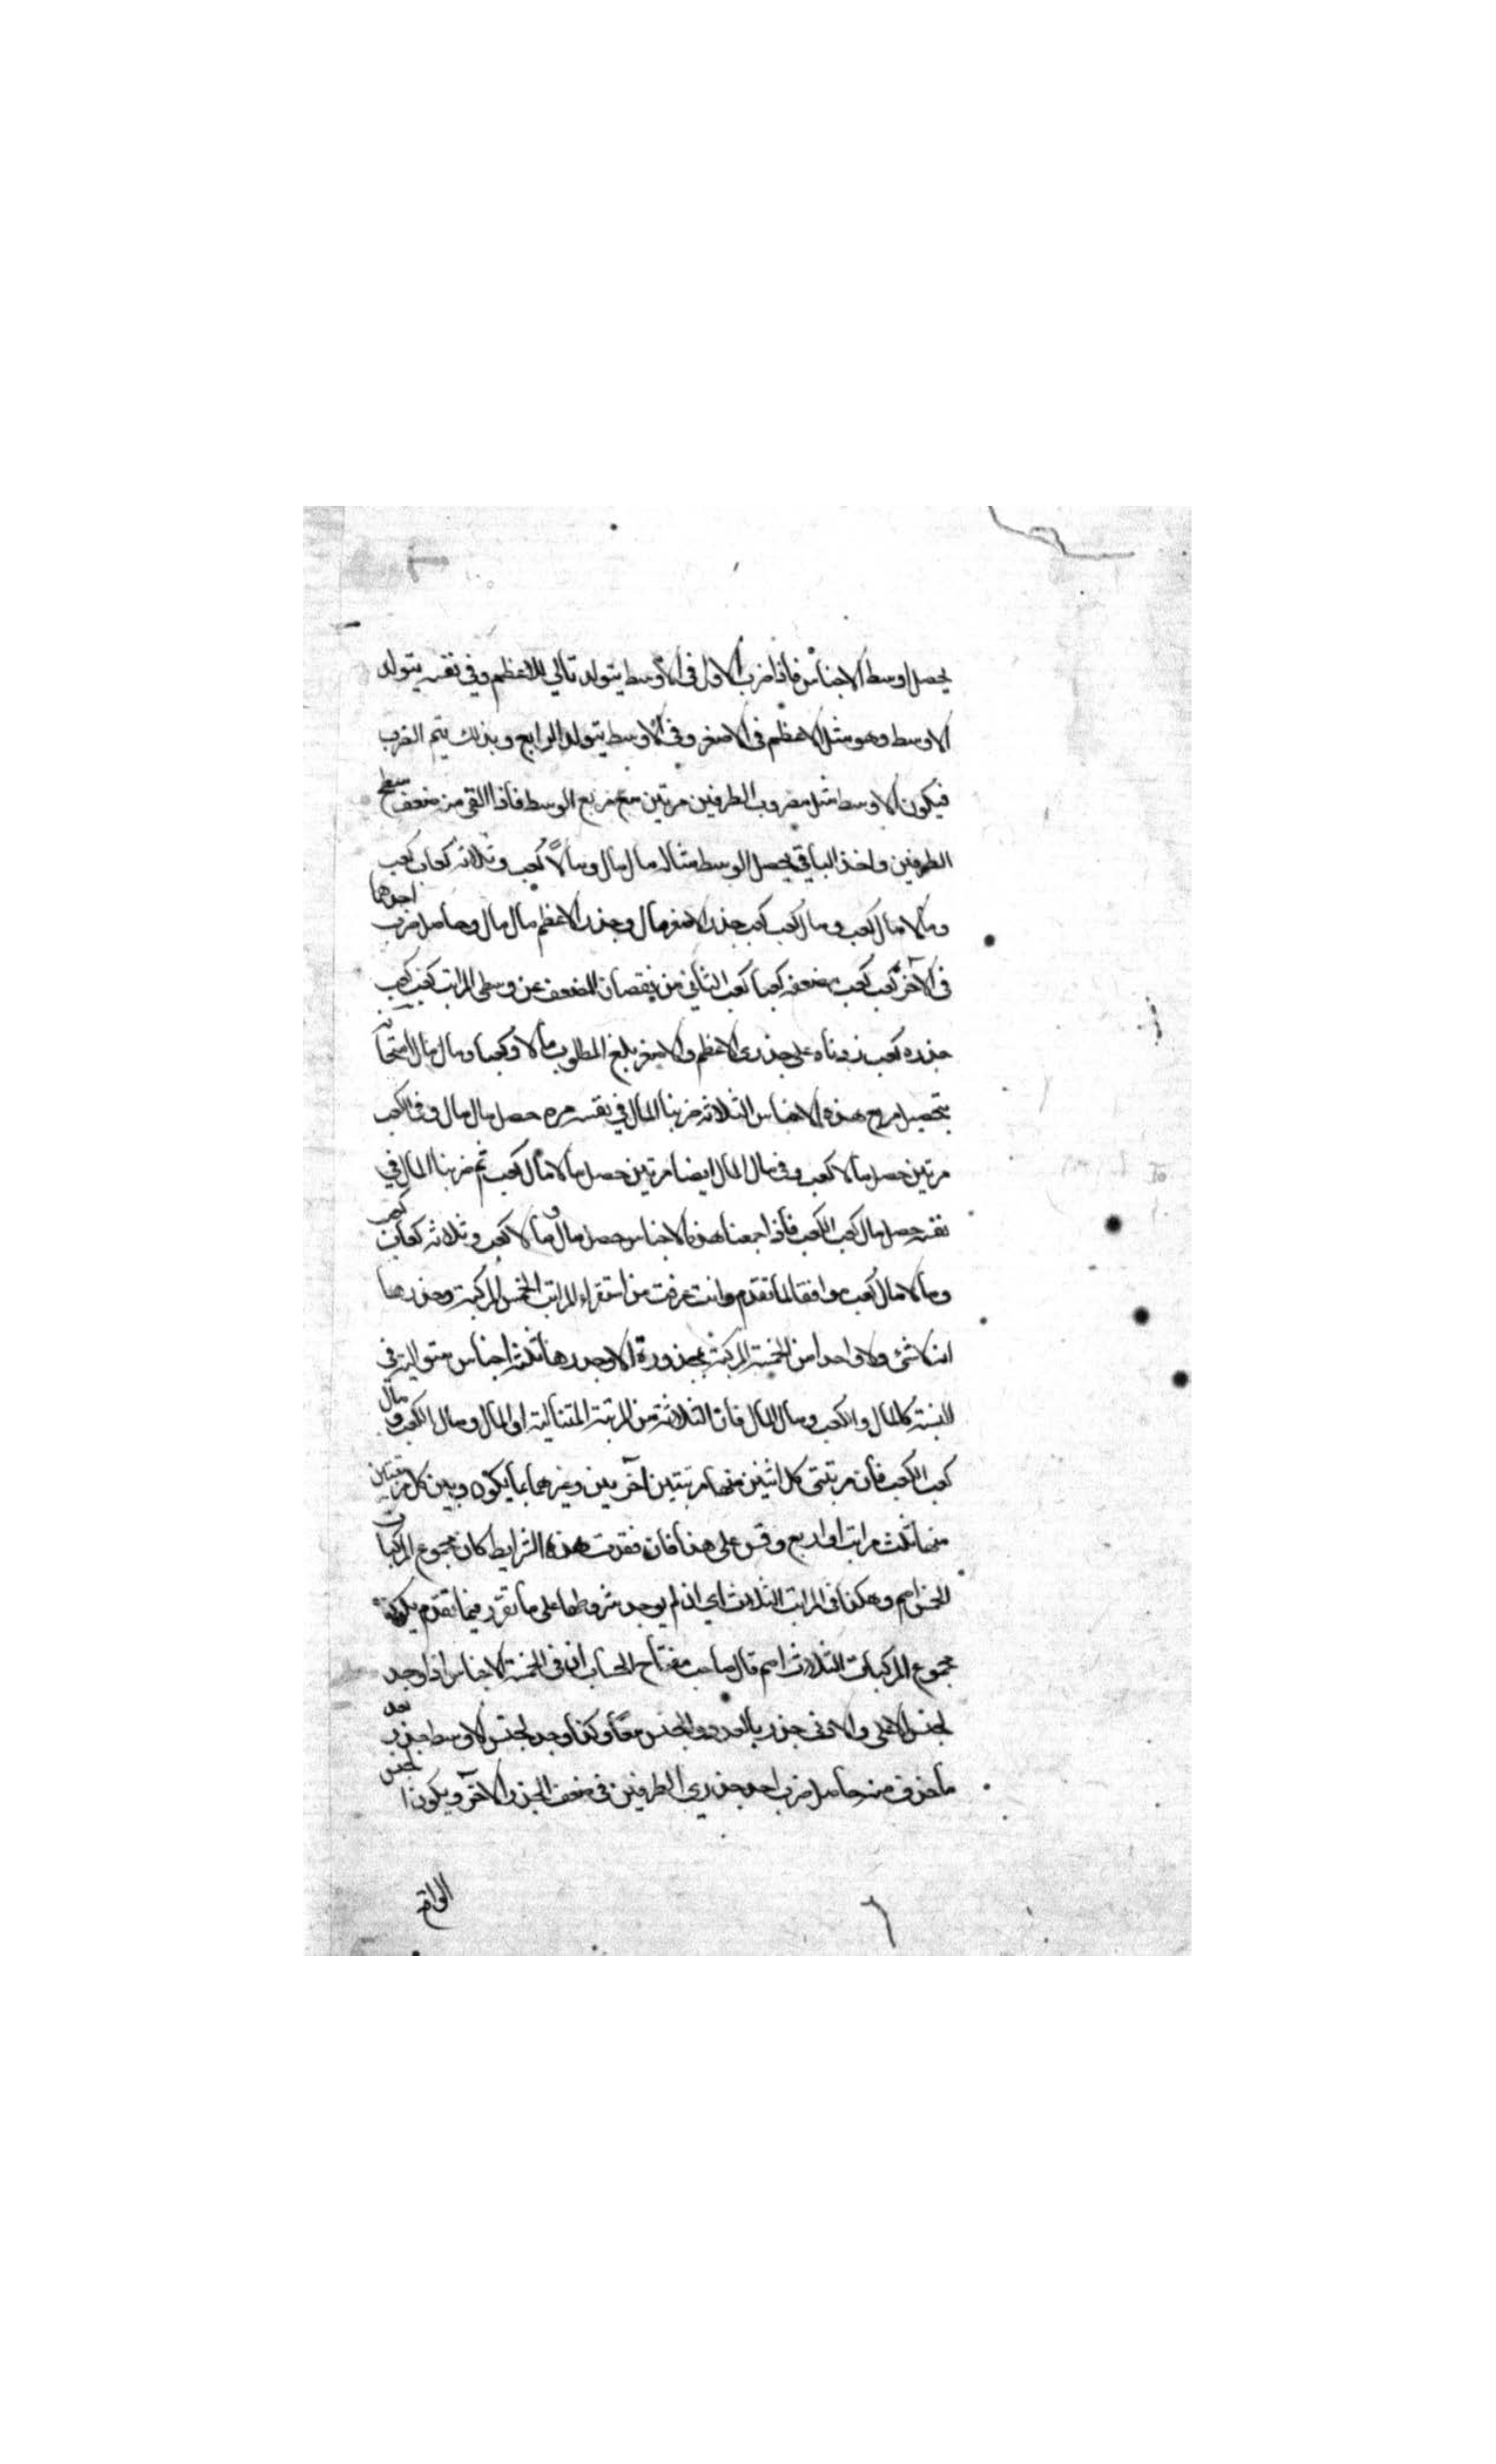 يحصل اوسط الاجناس فاذا ضرب الاول في الاوسط يتولد تالي للاعظم وفي نفسه يتولد
الاوسط وهو مثل الاعظم في الاصغر وفي الاوسط يتولد الرابع وبذلك يتم الضرب
فيكون الاوسط مثل مضروب الطرفين مرتين مع مربع الوسط فاذا القي من ضعف سطح
الطرفين واخذ الباقي يحصل الوسط مثاله مال مال ومالا كعب وثلاثه كعاب كعب
ومالا مال كعب ومال كعب كعب جذر الاصغر مال وجذر الاعظم مال مال وحاصل ضرب احدهما
في الآخر كعب كعب ضعفه كعبا كعب الثاني من نقصان الضعف عن وسطى المراتب كعب كعب
جذره كعب زدناه على جذرى الاعظم والاصغر بلغ المطلوب مالا وكعبا ومال مال امتحانه
بتحصيل مربع هذه الاجناس الثلاثه ضربنا المال في نفسه مره حصل مال مال وفي الكعب
مرتين حصل مالا كعب وفي مال المال ايضا مرتين حصل مالا مال كعب ثم ضربنا المال في
نفسه حصل مال كعب الكعب فاذا جمعنا هذه الاجناس حصل مال ومالا كعب وثلاثه كعاب كعب
ومالا مال كعب موافقا لما تقدم وانت عرفت من استقراء المراتب الخمس المركبة وجذرها
انه لا شئ ولا واحد من الخمسة المركبة بمجذورة الا وجذرها ثلثه اجناس متوالية في
النسبة كالمال والكعب ومال المال فان الثلاثة من المرتبة المتتالية او المال ومال الكعب ومال
كعب الكعب فان مرتبتي كل اثنين منها مرتبتين آخريين وغيرهما بما يكون وبين كل مرتبتين
منها ثلث مراتب او اربع وقس على هذا فان فقدت هذه الشرايط كان مجموع المركبات
الخمس اصم وهكذا في المراتب الثلاث اي ان لم يوجد شروطها على ما تقرر فيما تقدم يكون
مجموع المركبات الثلاث اصم قال صاحب مفتاح الحساب ان في الخمسة الاجناس اذا وجد
لجنس الاعلى والادنى جذر بالعدد والجنس معا وكذا وجد لجنس الاوسط جذر بعد
ماحذف منه حاصل ضرب احد جذري الطرفين في ضعف الجذر الآخر ويكون الجنس
الواقع